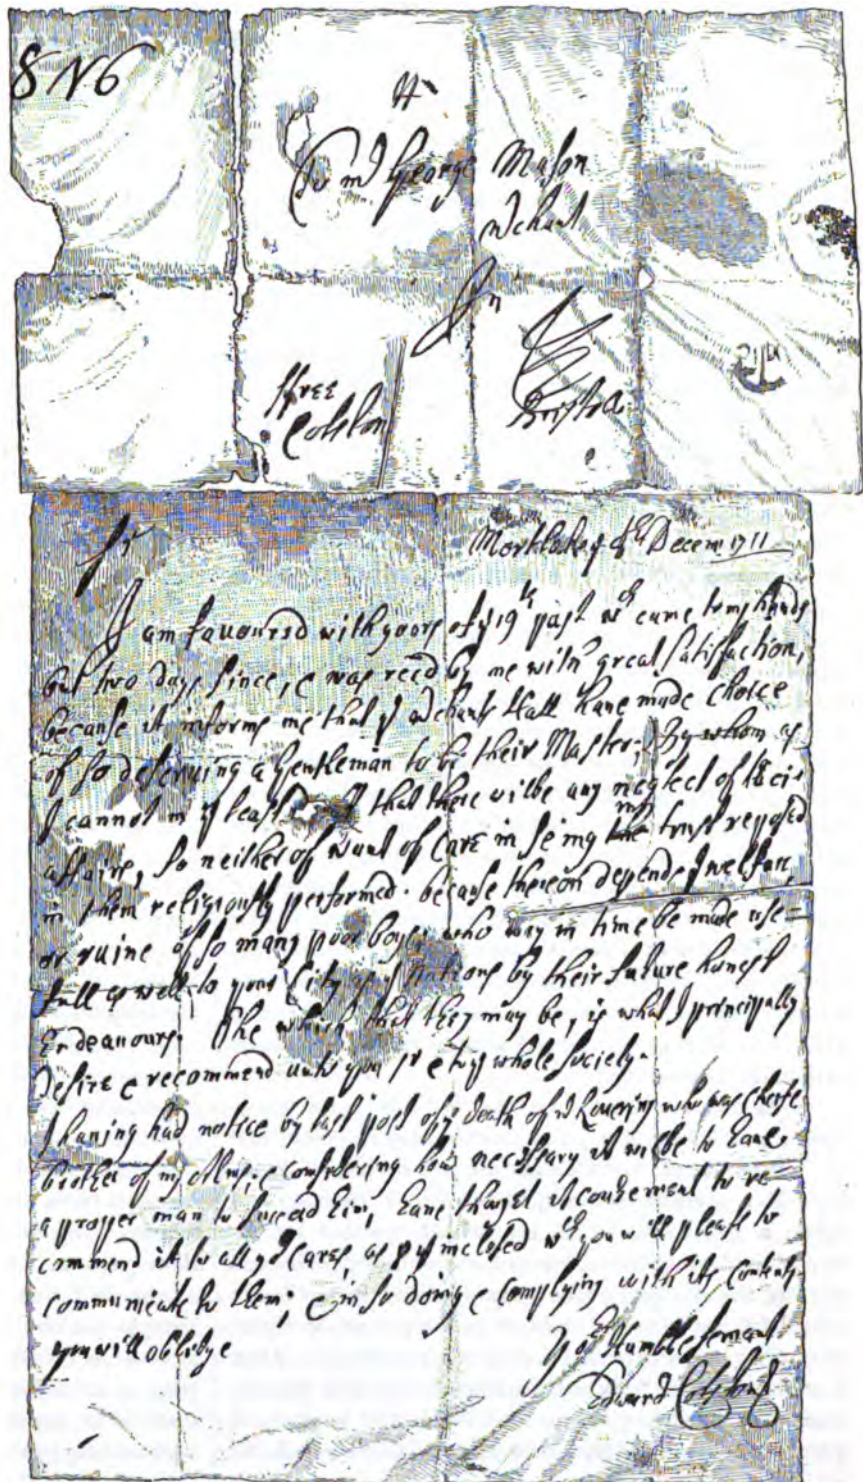 8 N 6
To mr George Mason
mrchant
In
ffree
Colston
Bristol
Sr
Mortlake ye Decem 1711
I am favoured with yours of ye 19th past wch came to my hands
but two days since, & was reced by me with great satisfaction,
because it informs me that ye mrchants Hall have made choice
of so deserving a Gentleman to be their Master; By whom as
I cannot in ye least that there wilbe any neglect of their
affairs, so neither of want of Care in seing the trust reposed
in them religiously performed. because thereon depends ye welfare
or ruine of so many poor boyes who may in time be made use-
full as well to your City as ye Nations by their future honest
Endeavours. The which that they may be, is what I principally
desire & recommend unto you sr & ye whole society.
I having had notice by last post of ye death of mr who was cheife
brother of my Almes considering how necessary it wilbe to have
a propper man to succeed him, have thought it convenient to re-
commend it to all yor Cares, as pr ye inclosed wch you will please to
communicate to them; & in so doing & complying with its contents
you will oblidge
Yor Humble servant
Edward Colston